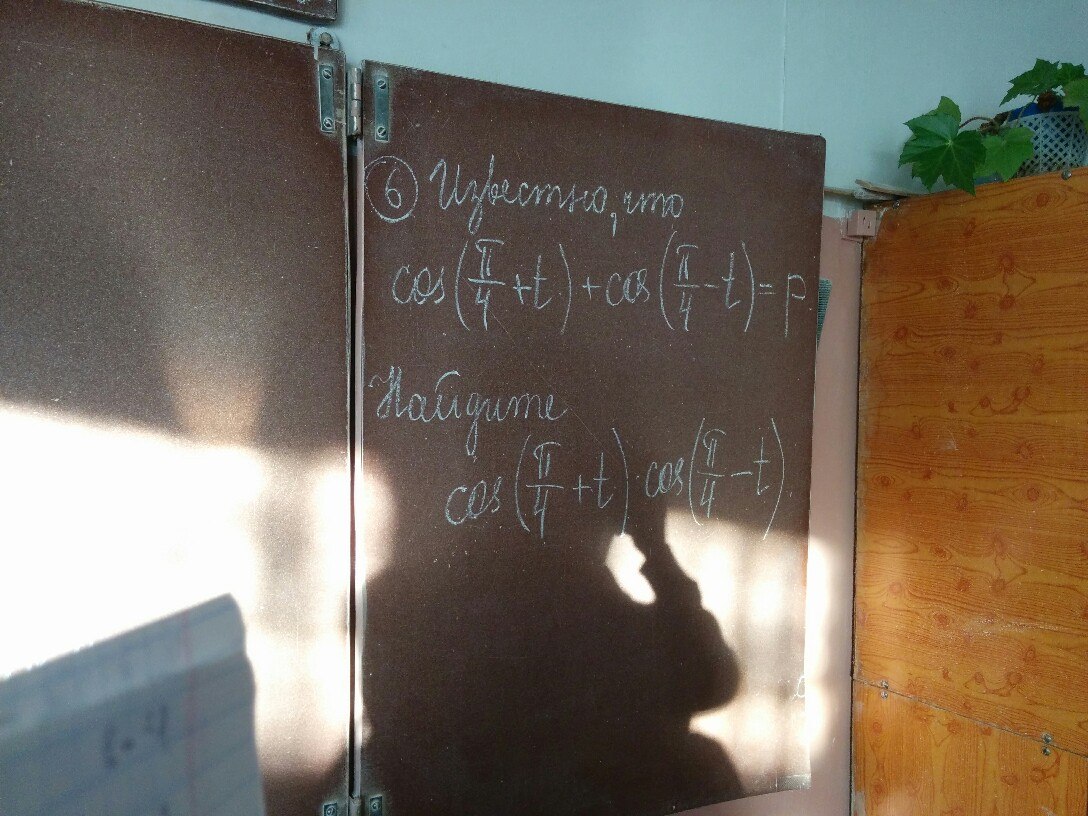 6 Известно, что
cos(π/4 + t) + cos(π/4 - t) = p
Найдите
cos(π/4 + t) · cos(π/4 - t).